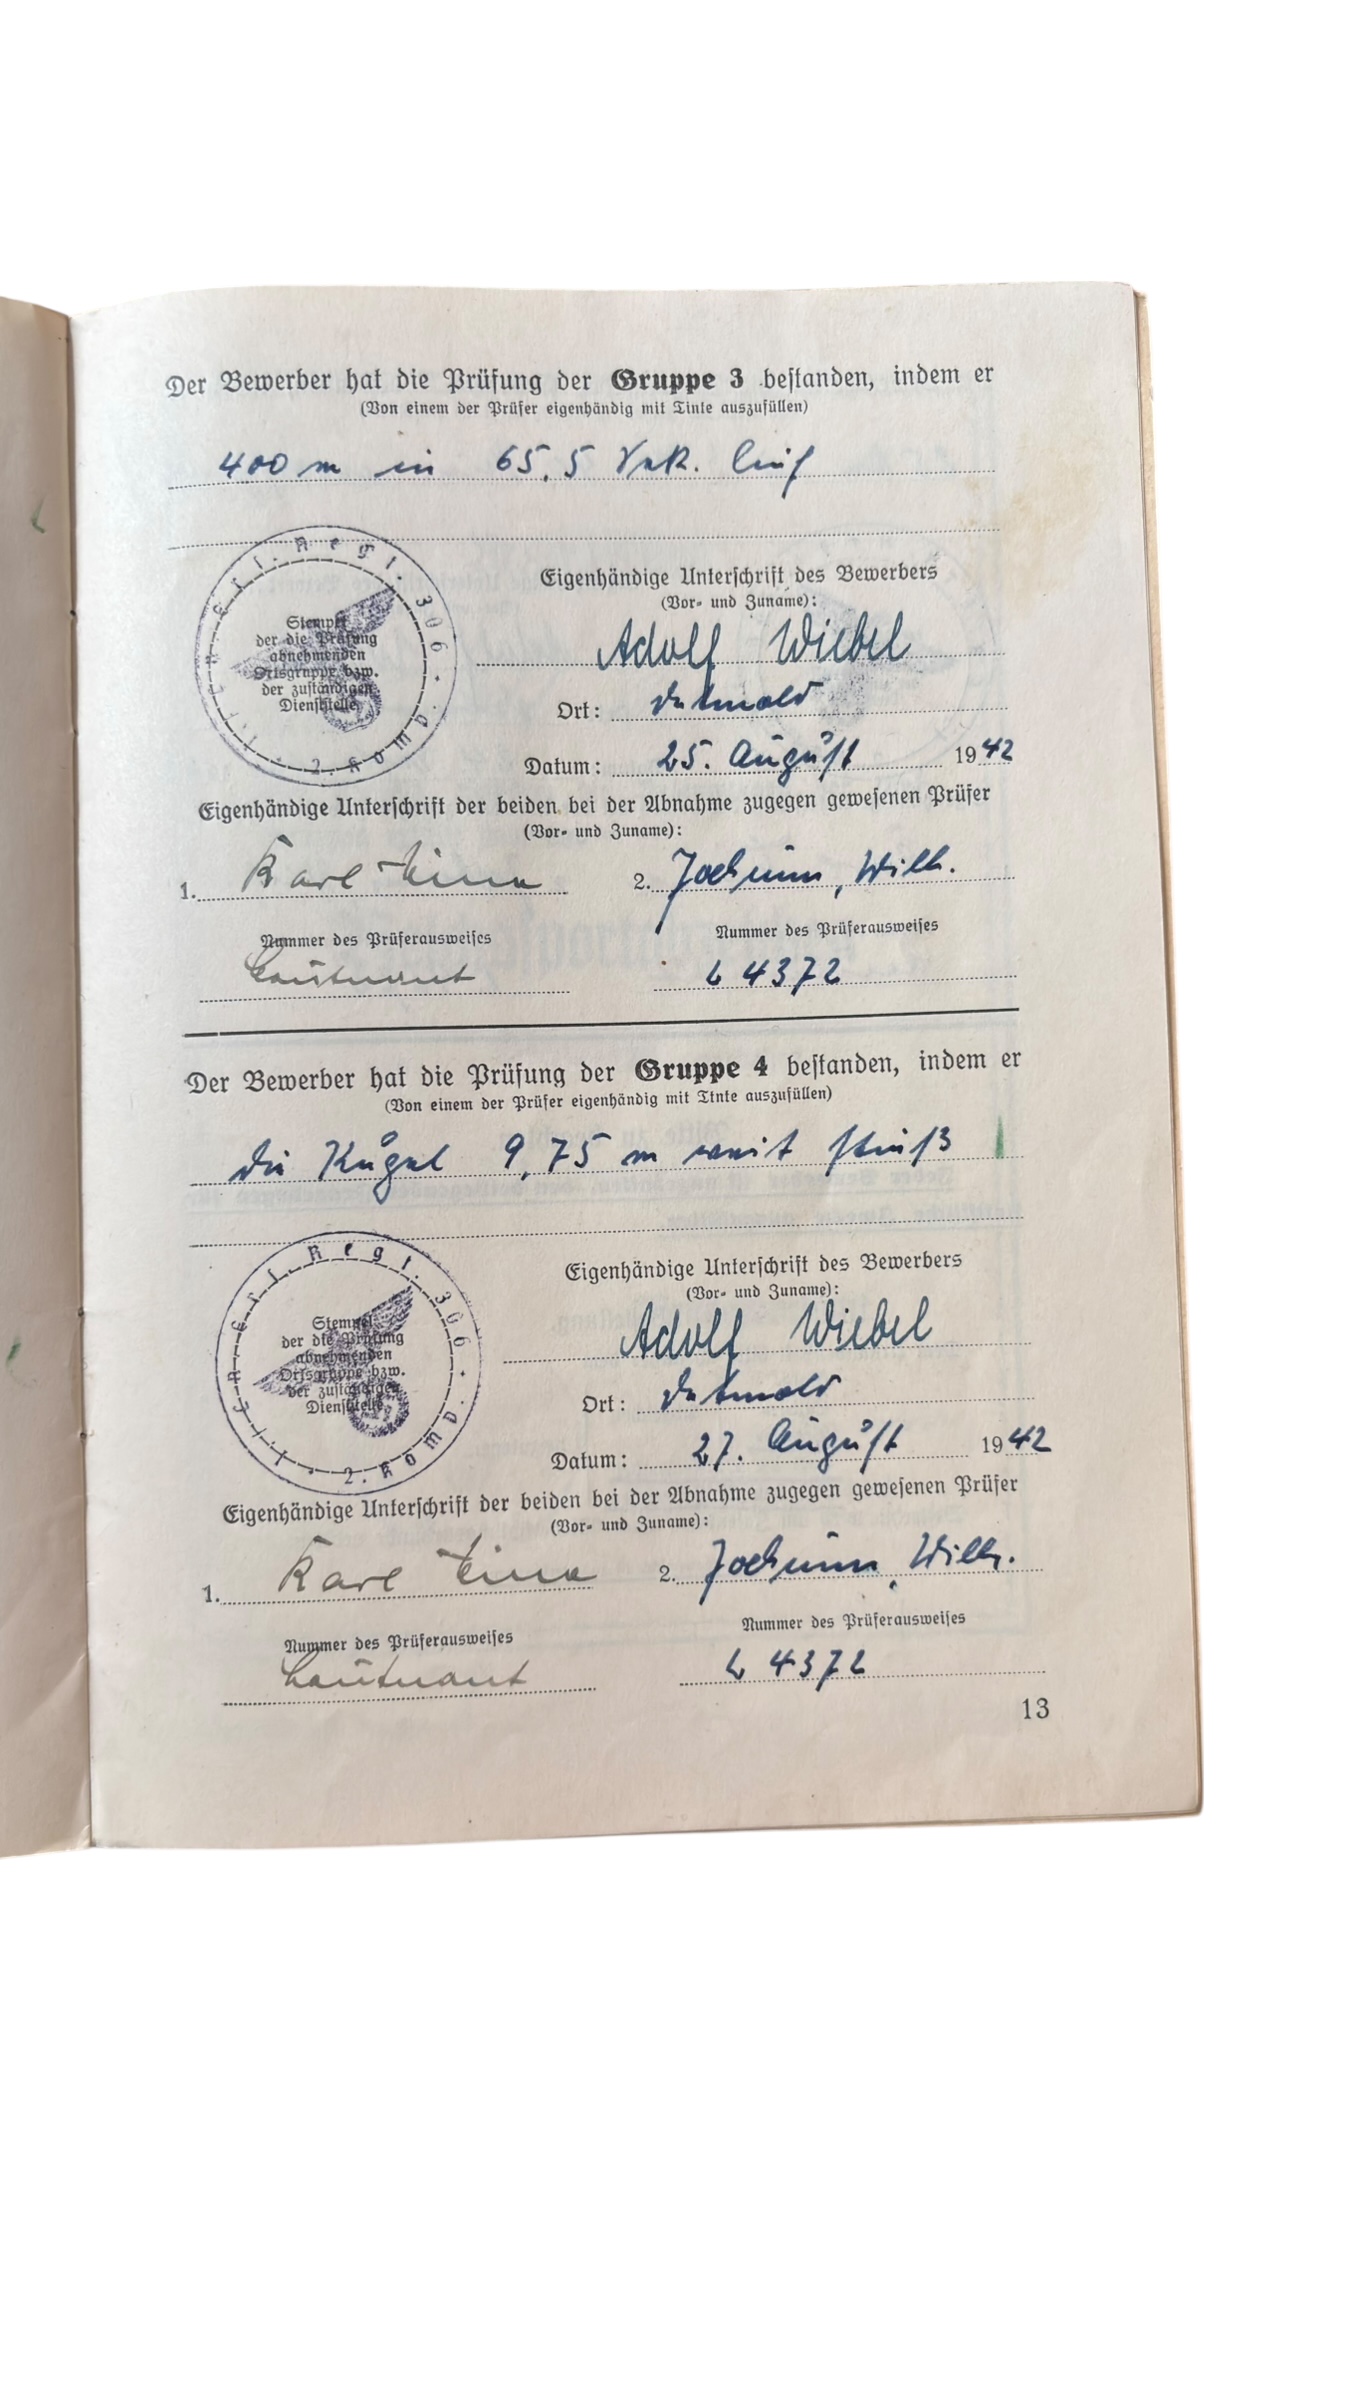 Der Bewerber hat die Prüfung der Gruppe 3 bestanden, indem er
(Von einem der Prüfer eigenhändig mit Tinte auszufüllen)
400 m in 65,5 Sek. lief
Stempel
der die Prüfung
abnehmenden
Ortsgruppe bzw.
der zuständigen
Dienststelle
Inf. Ers. Regt. 306 · 2. Komp.
Eigenhändige Unterschrift des Bewerbers
(Vor- und Zuname):
Adolf Wiebel
Ort: Detmold
Datum: 25. August 1942
Eigenhändige Unterschrift der beiden bei der Abnahme zugegen gewesenen Prüfer
(Vor- und Zuname):
1. Karl 2. Jochum, Wilh.
Nummer des Prüferausweises Nummer des Prüferausweises
Leutnant L 4372
Der Bewerber hat die Prüfung der Gruppe 4 bestanden, indem er
(Von einem der Prüfer eigenhändig mit Tinte auszufüllen)
die Kugel 9,75 m weit stieß
Stempel
der die Prüfung
abnehmenden
Ortsgruppe bzw.
der zuständigen
Dienststelle
Regt. 306 · 2. Komp.
Eigenhändige Unterschrift des Bewerbers
(Vor- und Zuname):
Adolf Wiebel
Ort: Detmold
Datum: 27. August 1942
Eigenhändige Unterschrift der beiden bei der Abnahme zugegen gewesenen Prüfer
(Vor- und Zuname):
1. Karl 2. Jochum, Wilh.
Nummer des Prüferausweises Nummer des Prüferausweises
Leutnant L 4372
13